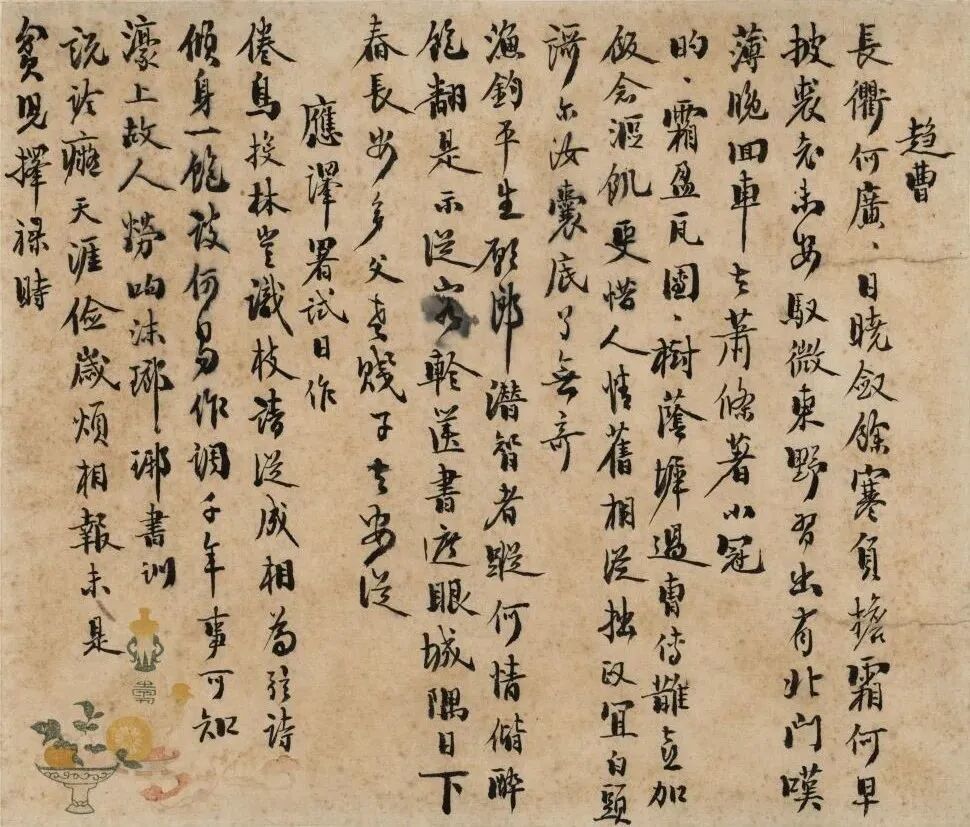 趍曹
長衢何廣〻日曉斂餘寒負擔霜何早
披裘老未安馭微東野習出有北門嘆
薄晚回車去蕭條著小冠
的〻霜盈瓦團〻樹蔭墀過曹傳立加
飯念飢更惜人情舊相從拙政宜白頭
謝尔汝囊底了無奇
漁釣平生願郎潛智者蹤何情偕醉
飽翻是示從容送書遮眼城隅日下
舂長安多父老賤子去安從
應澤署試日作
倦鳥投林豈識枝請從成相為弦詩
傾身一飽何易作調千年事可知
濠上故人勞呴沫瑯琊書訓
說診癡天涯儉歲煩相報未是
貧兒擇祿時